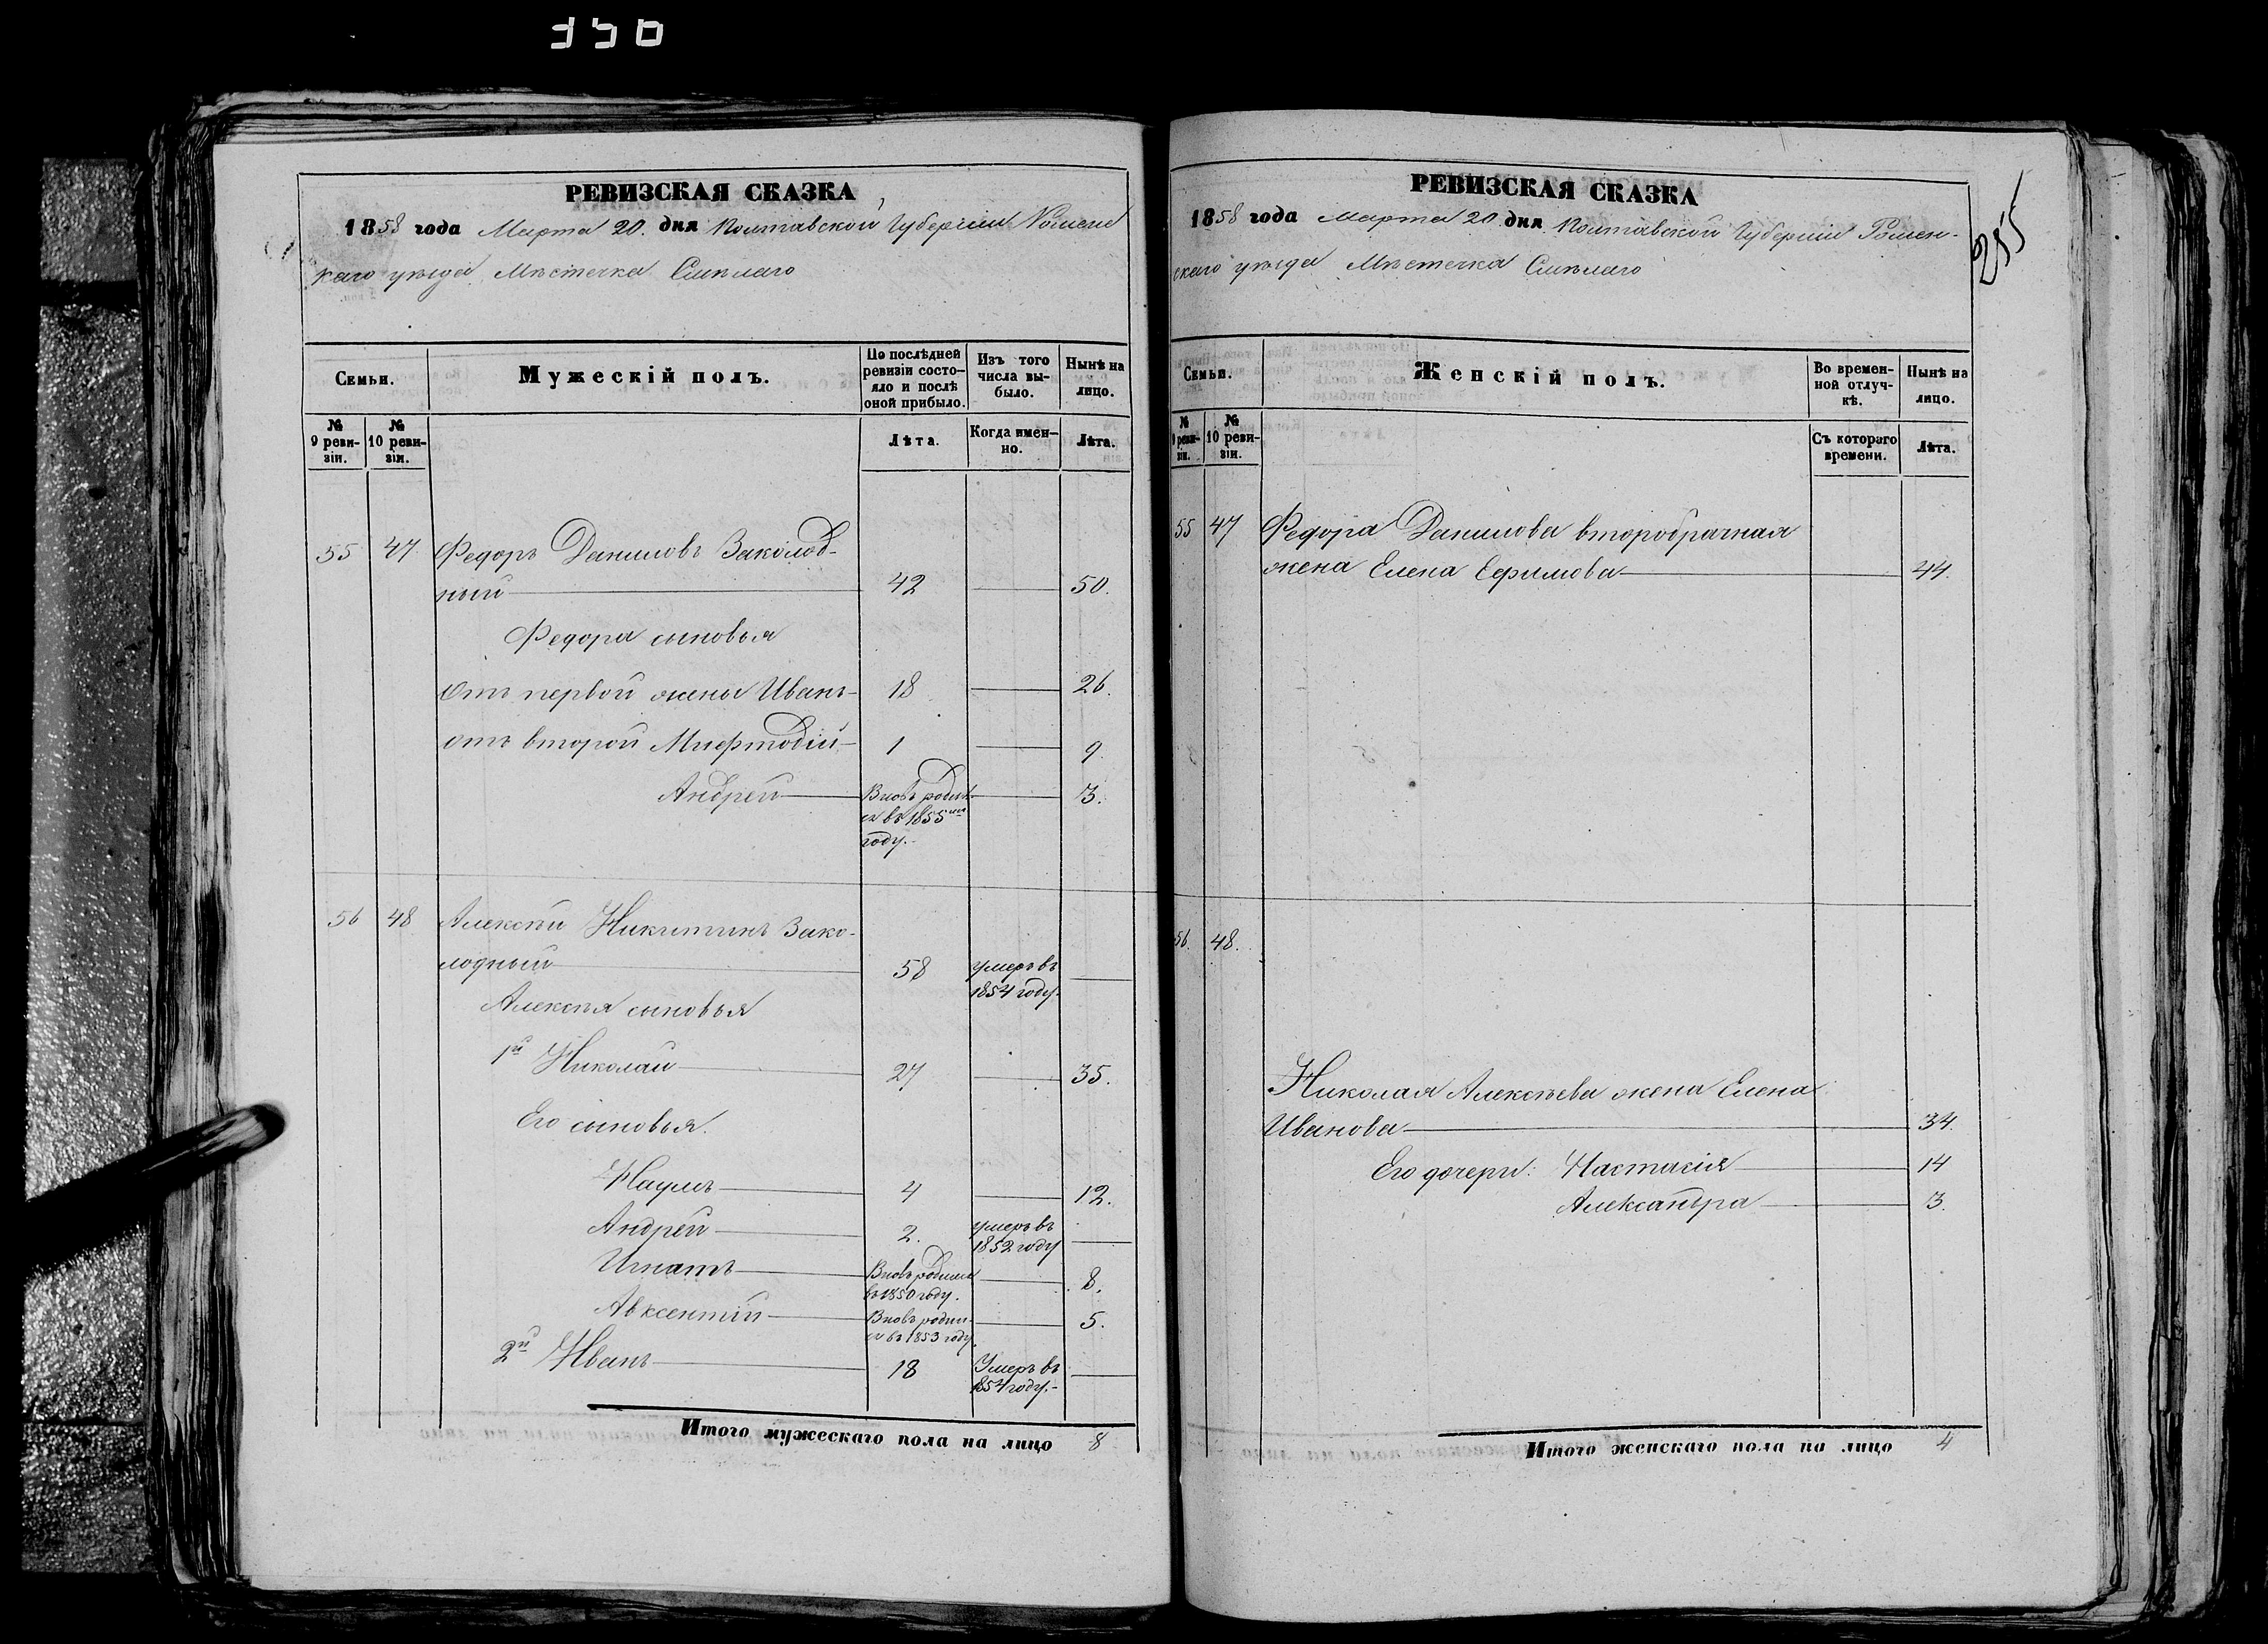 350
РЕВИЗСКАЯ СКАЗКА
1858 года Марта 20. дня Полтавской Губерніи Ромен
скаго уѣзда Мѣстечка Смѣлаго
Семьи.
Мужескій полъ.
По послѣдней ревизіи состо-
яло и послѣ
оной прибыло.
Изъ того
числа вы-
было.
Нынѣ на
лицо.
№
9 реви-
зіи.
№
10 реви-
зіи.
Лѣта.
Когда имен-
но.
Лѣта.
55 47 Федоръ Даниловъ Заколод-
ный 42 50.
Федора сыновья
Отъ первой жены Иванъ 18 26.
отъ второй Мефтодій 1 9.
Андрей Вновь родил-
ся въ 1855мъ
году. 3.
56 48 Алексѣй Никитинъ Зако-
лодный 58 умеръ въ
1854 году.
Алексѣя сыновья
1й Николай 27 35.
Его сыновья.
Наумъ 4 12.
Андрей 2. умеръ въ
1852 году
Игнатъ Вновь родился
въ 1850 году. 8.
Авксентій Вновь родил-
ся въ 1853 году 5.
2й Иванъ 18 Умеръ въ
1854 году.
Итого мужескаго пола на лицо 8
РЕВИЗСКАЯ СКАЗКА
1858 года Марта 20 дня Полтавской Губерніи Ромен-
скаго уѣзда Мѣстечка Смѣлаго
255
Семьи.
Женскій полъ.
Во времен-
ной отлуч-
кѣ.
Нынѣ на
лицо.
№
9 реви-
зіи.
№
10 реви-
зіи.
Съ котораго
времени.
Лѣта.
55 47 Федора Данилова второбрачная
жена Елена Ефимова 44.
56. 48.
Николая Алексѣева жена Елена
Иванова 34.
Его дочери: Настасія 14
Александра 3.
Итого женскаго пола на лицо 4